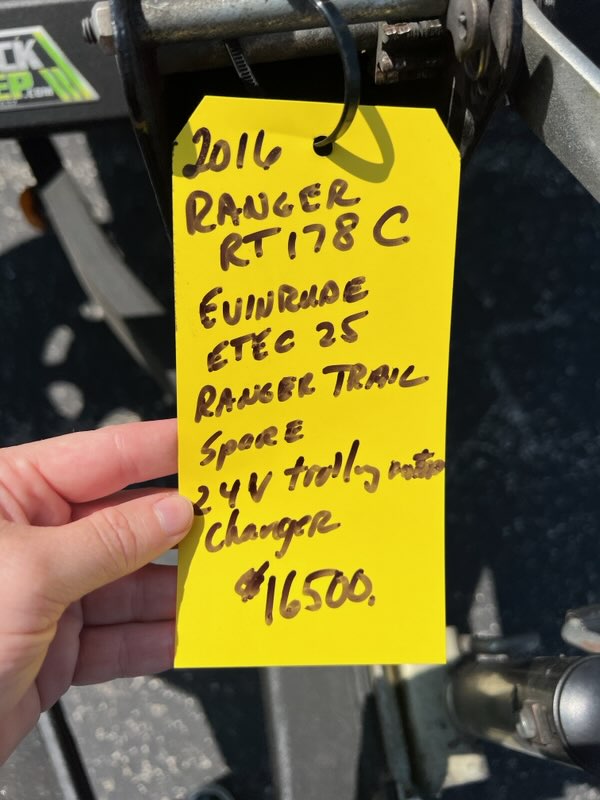 2016
RANGER
RT178C
EVINRUDE
ETEC 25
RANGER TRAIL
SPARE
24V trolly motor
Charger
$16500.